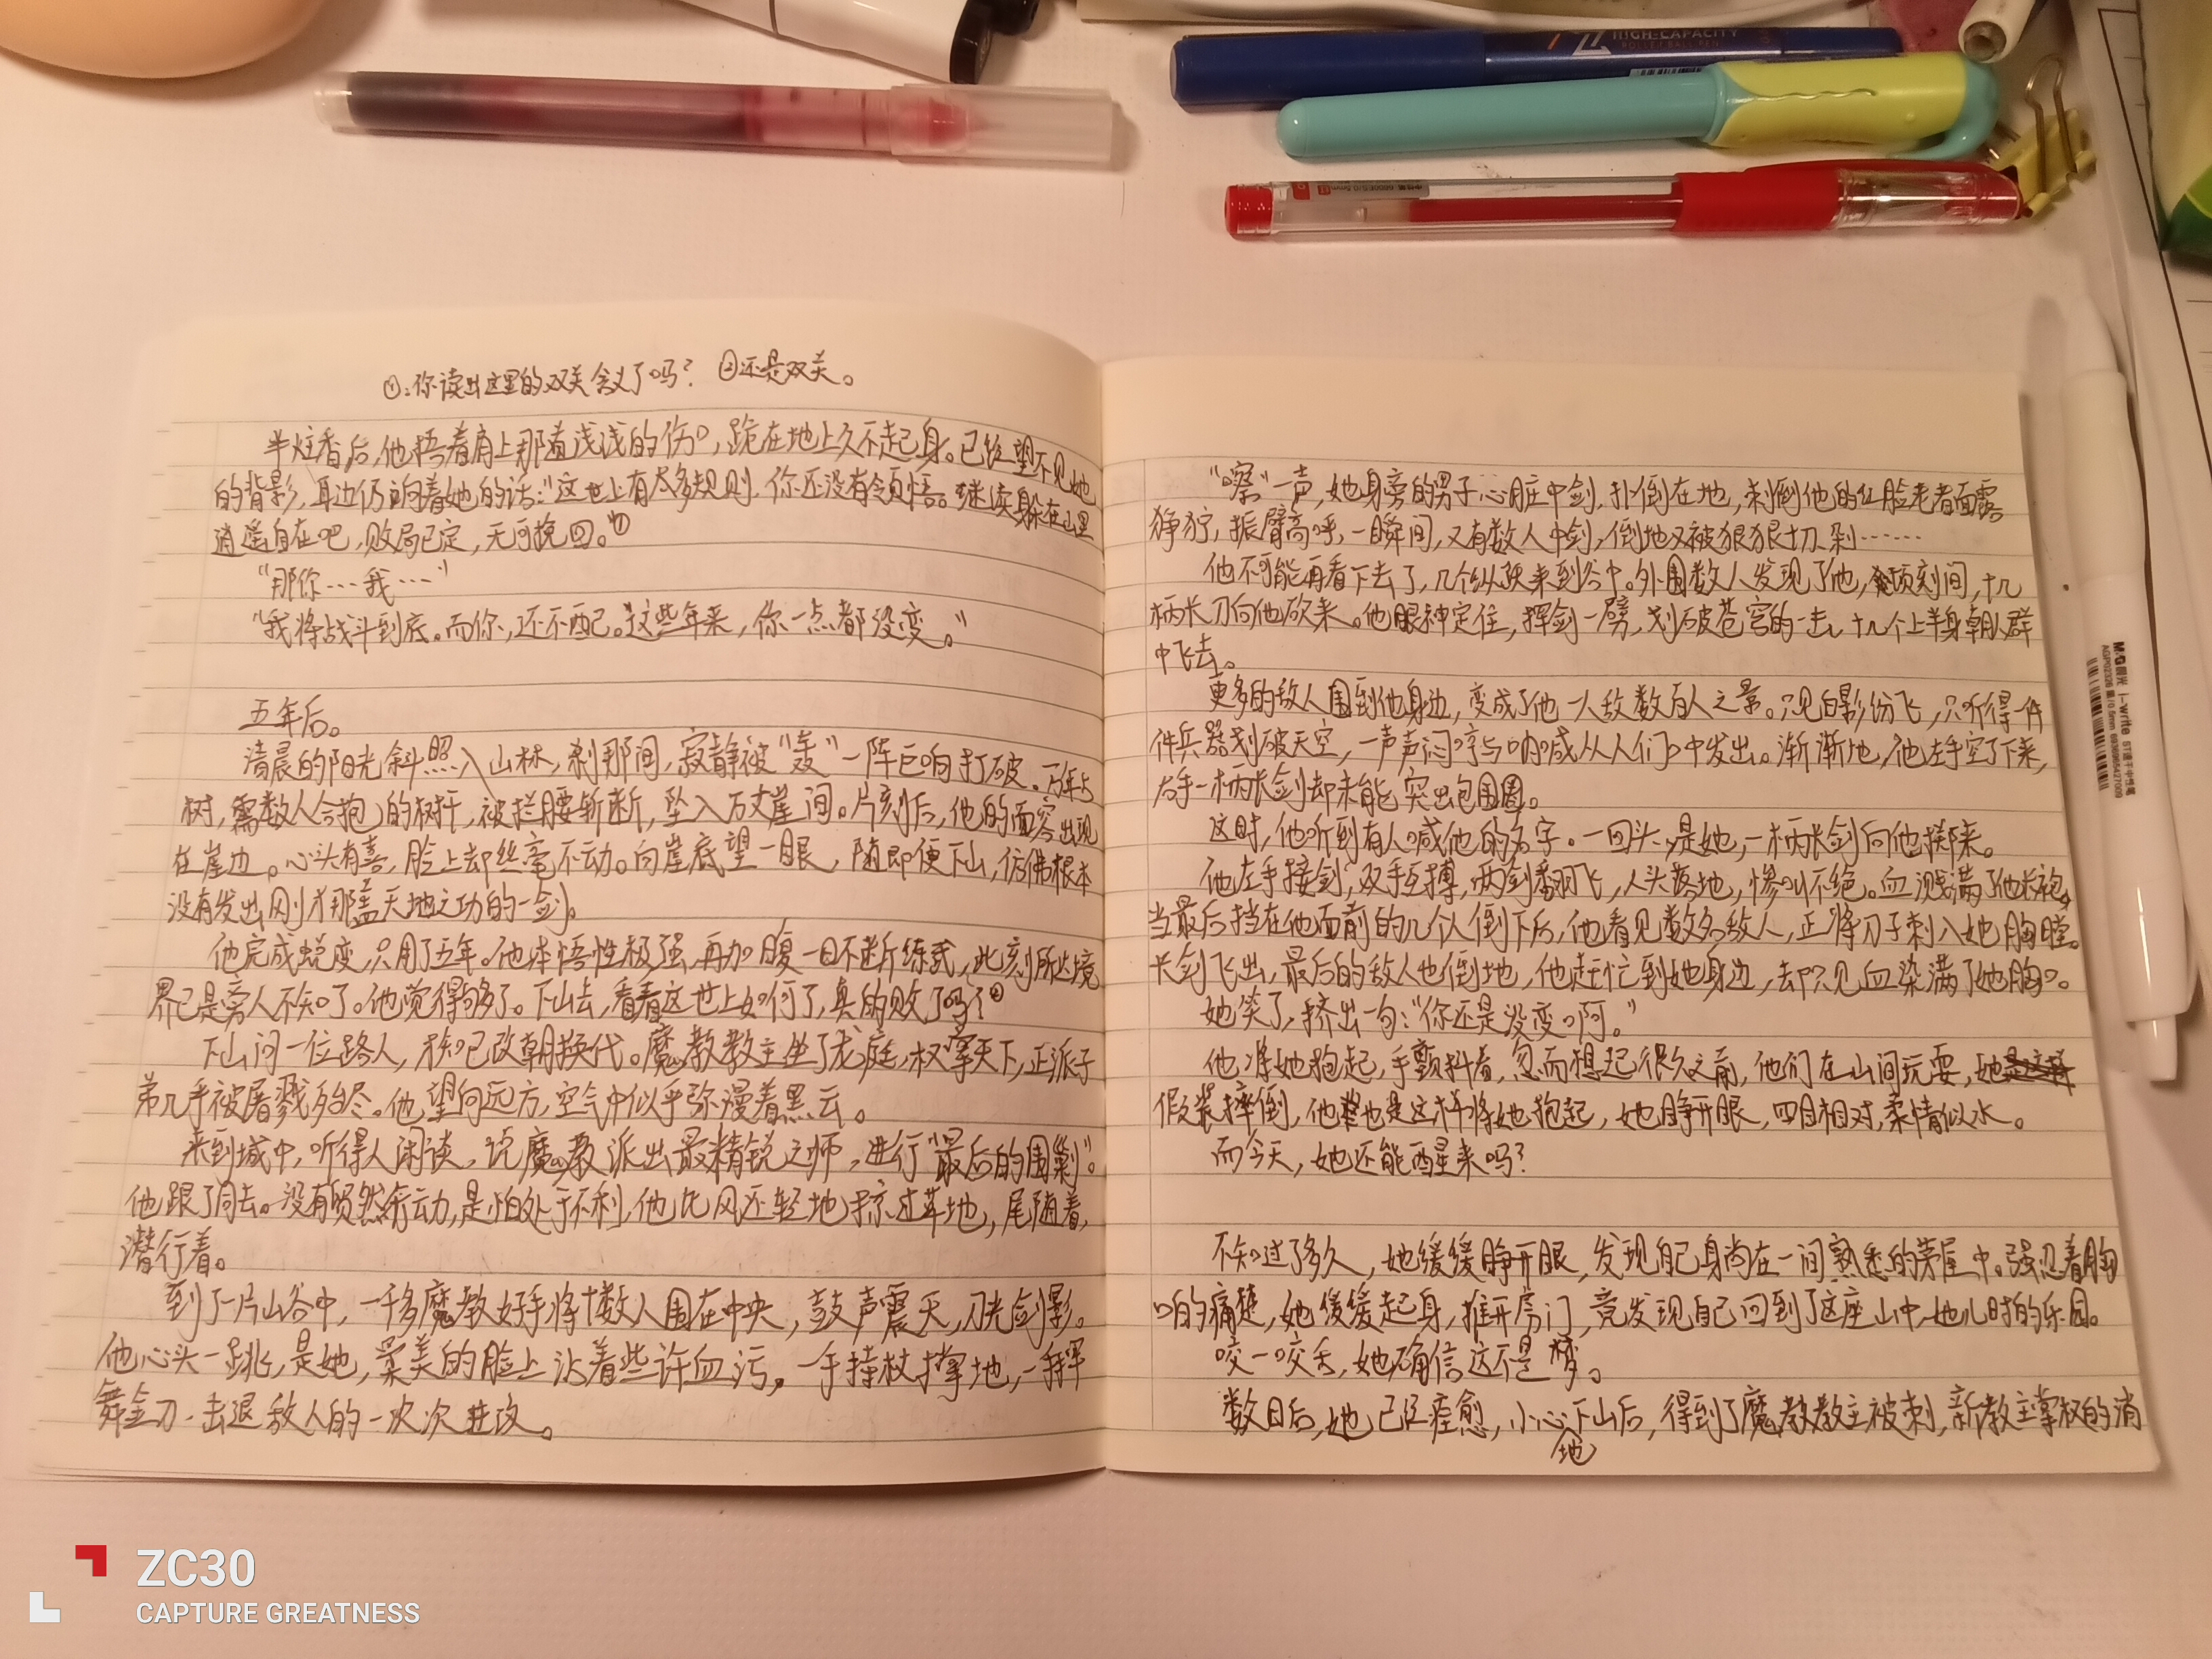 HIGH-CAPACITY
ROLLER BALL PEN
①:你读出这里的双关含义了吗? ②还是双关。
半炷香后,他捂着肩上那道浅浅的伤口,跪在地上久不起身。已经望不见她
的背影,耳边仍响着她的话:"这世上有太多规则,你还没有领悟。继续躲在山里
逍遥自在吧,败局已定,无可挽回。"①
"那你……我……"
"我将战斗到底。而你,还不配。这些年来,你一点都没变。"
五年后。
清晨的阳光斜照入山林,刹那间,寂静被"轰"一阵巨响打破。万年古
树,需数人合抱的树干,被拦腰斩断,坠入万丈崖间。片刻后,他的面容出现
在崖边。心头有喜,脸上却丝毫不动。向崖底望一眼,随即便下山,仿佛根本
没有发出刚才那盖天地之功的一剑。
他完成蜕变,只用了五年。他本悟性极强,再加日复一日不断练武,此刻所达境
界已是旁人不知了。他觉得够了。下山去,看看这世上如何了,真的败了吗?②
下山问一位路人,才知已改朝换代。魔教教主坐了龙庭,权掌天下,正派子
弟几乎被屠戮殆尽。他望向远方,空气中似乎弥漫着黑云。
来到城中,听得人闲谈,说魔教派出最精锐之师,进行"最后的围剿"。
他跟了同去。没有贸然行动,是怕处于不利,他比风还轻地掠过草地,尾随着,
潜行着。
到了一片山谷中,一千多魔教好手将十数人围在中央,鼓声震天,刀光剑影。
他心头一跳,是她,柔美的脸上沾着些许血污。一手持杖撑地,一手挥
舞金刀,击退敌人的一次次进攻。
"嚓"一声,她身旁的男子心脏中剑,扑倒在地,刺倒他的红脸老者面露
狰狞,振臂高呼,一瞬间,又有数人中剑,倒地又被狠狠切剁……
他不可能再看下去了,几个纵跃来到谷中。外围数人发现了他,顷刻间,十几
柄长刀向他砍来。他眼神定住,挥剑一劈,划破苍穹的一击,十几个上半身朝人群
中飞去。
更多的敌人围到他身边,变成了他一人敌数百人之景。只见白影纷飞,只听得一件
件兵器划破天空,一声声闷哼与呐喊从人们口中发出。渐渐地,他左手空了下来,
右手一柄长剑却未能突出包围圈。
这时,他听到有人喊他的名字。一回头,是她,一柄长剑向他掷来。
他左手接剑,双手互搏,两剑翻飞,人头落地,惨叫不绝。血溅满了他长袍。
当最后挡在他面前的几个人倒下后,他看见数名敌人,正将刀子刺入她胸膛。
长剑飞出,最后的敌人也倒地,他赶忙到她身边,却只见血染满了她胸口。
她笑了,挤出一句:"你还是没变啊。"
他将她抱起,手颤抖着,忽而想起很久之前,他们在山间玩耍,她
假装摔倒,他也是这样将她抱起,她睁开眼,四目相对,柔情似水。
而今天,她还能醒来吗?
不知过了多久,她缓缓睁开眼,发现自己身尚在一间熟悉的茅屋中。强忍着胸
口的痛楚,她缓缓起身,推开房门,竟发现自己回到了这座山中,她儿时的乐园。
咬一咬舌,她确信这不是梦。
数日后,她已经痊愈,小心地下山后,得到了魔教教主被刺,新教主掌权的消
M&G晨光 i-write
ZC30
CAPTURE GREATNESS